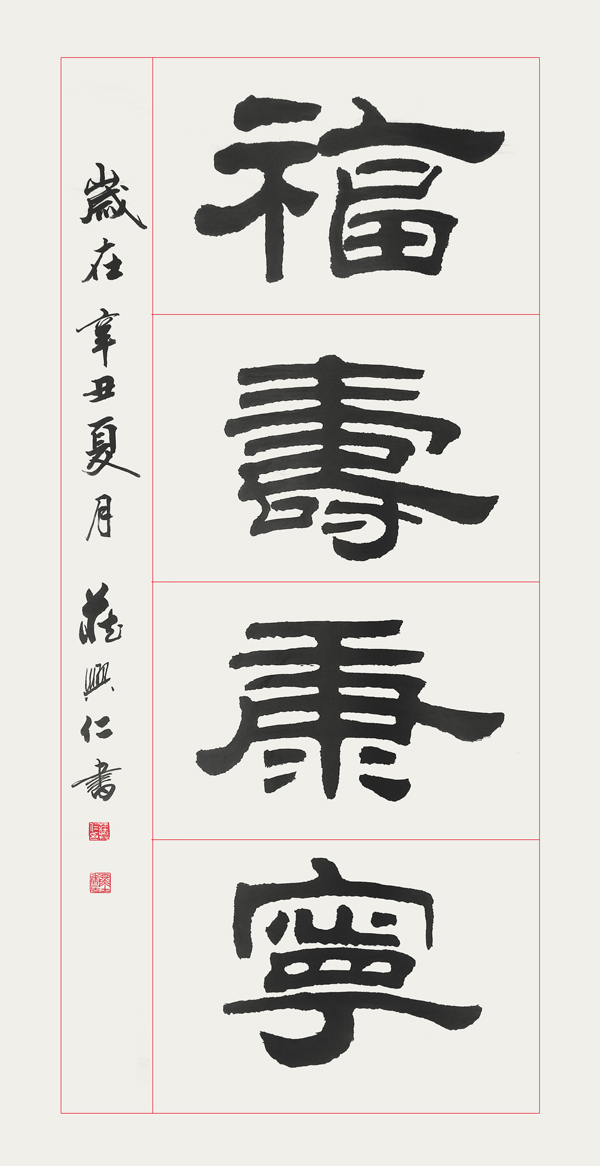 福壽康寧
歲在辛丑夏月 莊興仁書